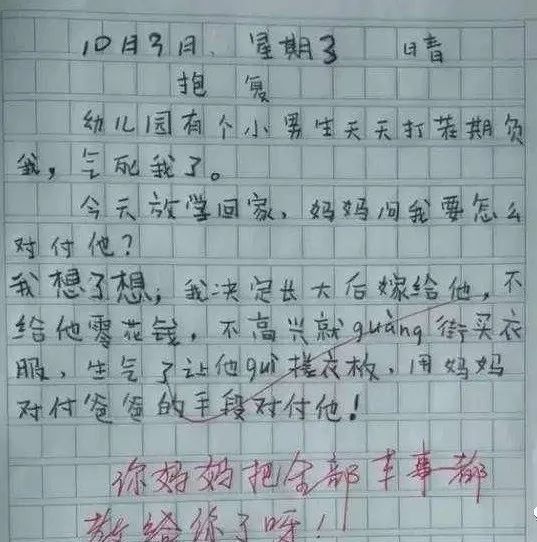 10月3日、 星期3 日晴
抱 复
幼儿园有个小男生天天打茬期负
我，气死我了。
今天放学回家，妈妈问我要怎么
对付他？
我想了想，我决定长大后嫁给他，不
给他零花钱，不高兴就guàng街买衣
服，生气了让他guì搓衣板，用妈妈
对付爸爸的手段对付他！
你妈妈把全部本事都
教给你了呀！